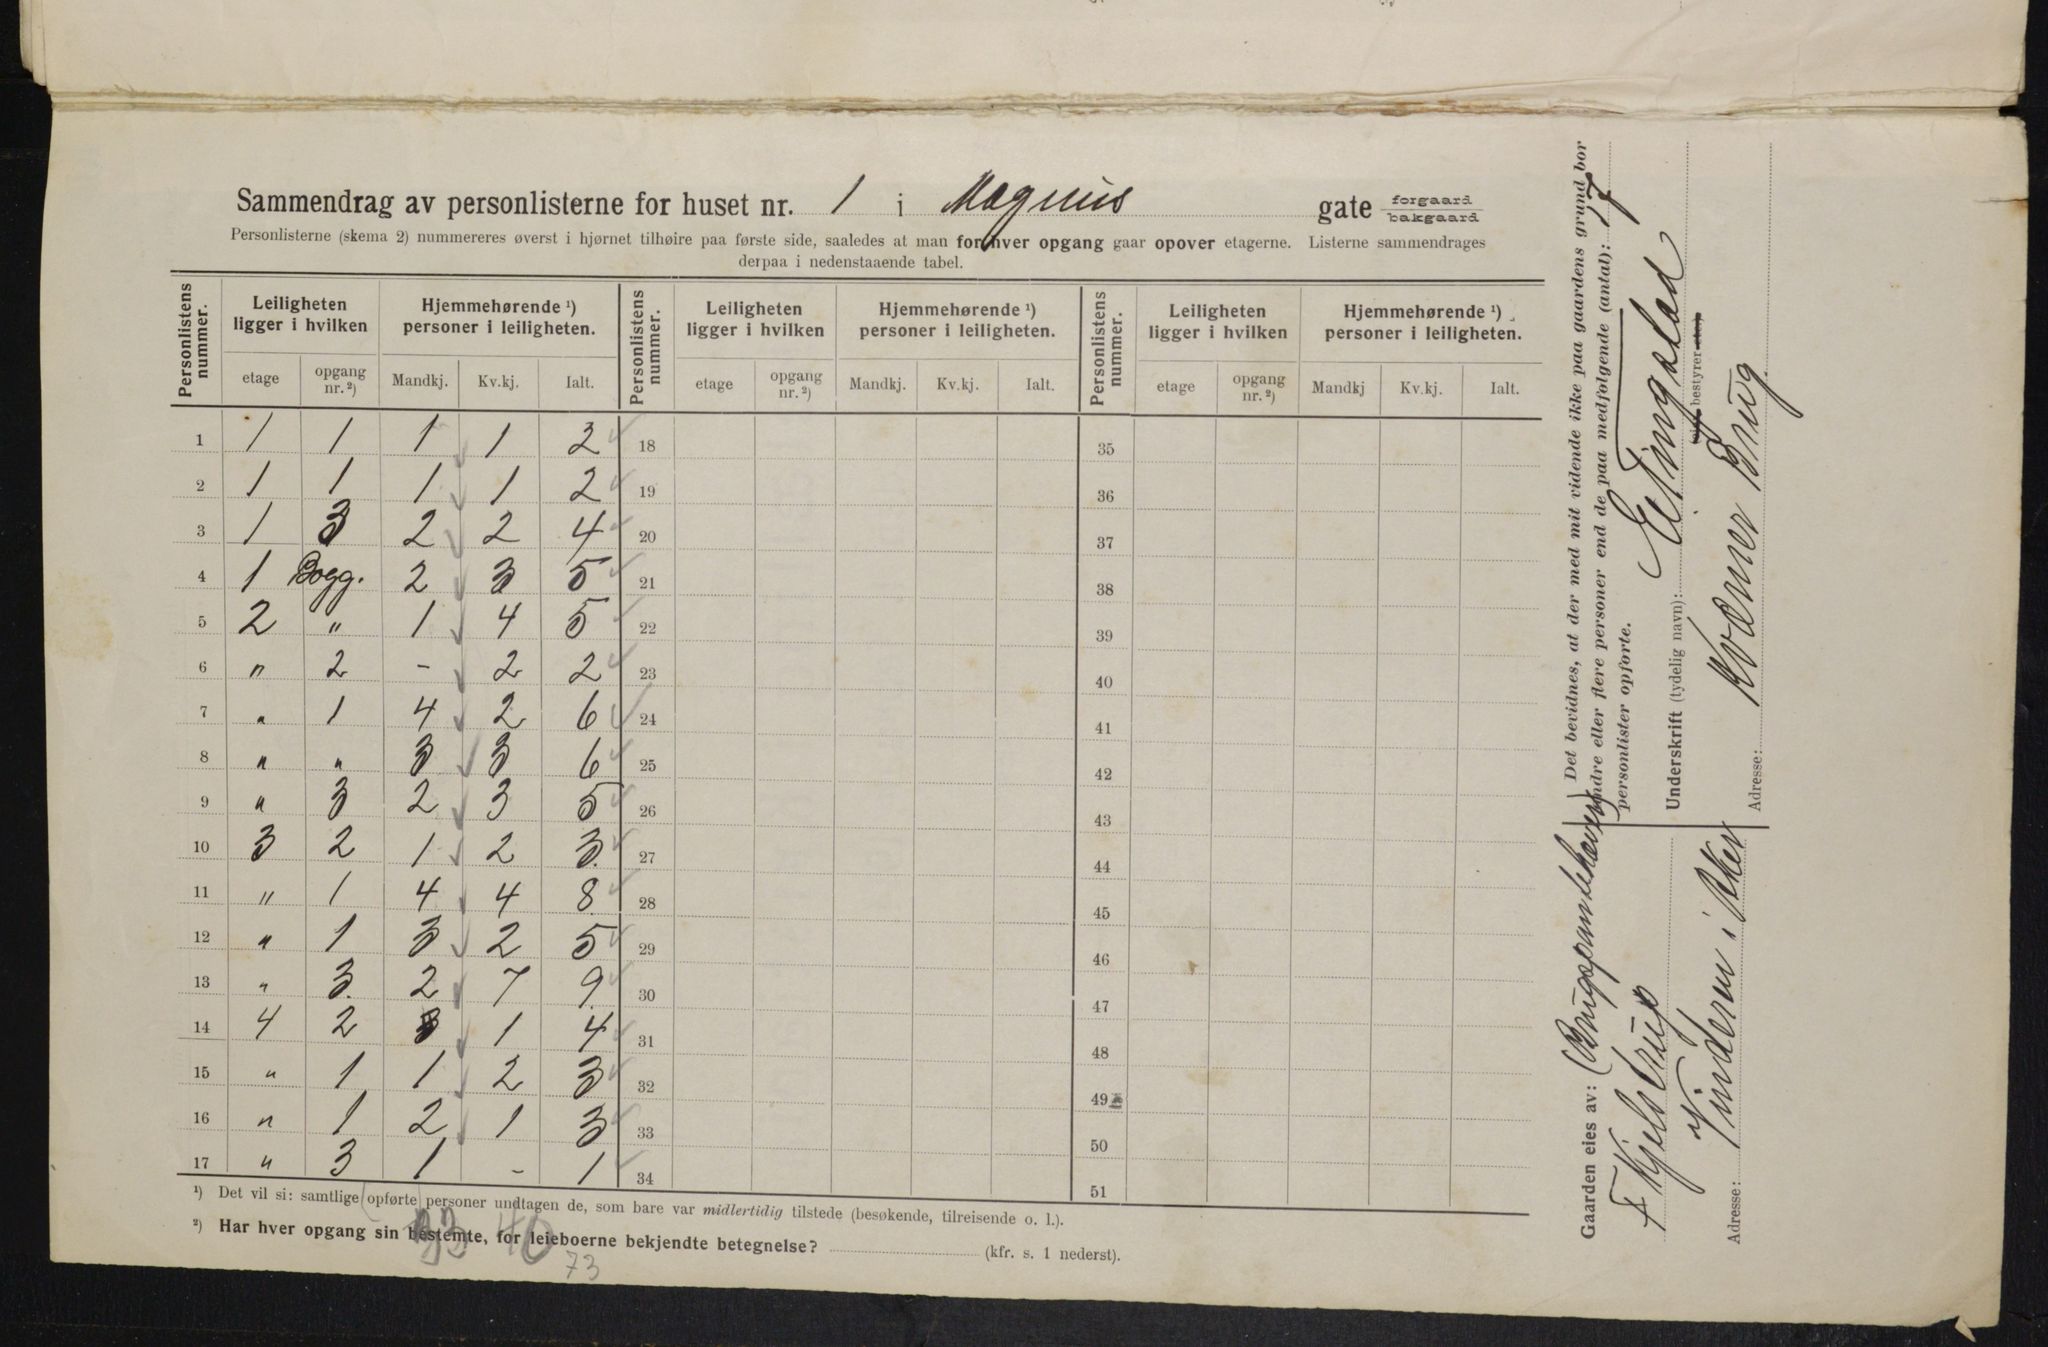 Sammendrag av personlisterne for huset nr. 1 i Magnus gate forgaard bakgaard
Personlisterne (skema 2) nummereres øverst i hjørnet tilhøire paa første side, saaledes at man for hver opgang gaar opover etagerne. Listerne sammendrages
derpaa i nedenstaaende tabel.
Personlistens nummer. Leiligheten ligger i hvilken Hjemmehørende ¹) personer i leiligheten. Personlistens nummer. Leiligheten ligger i hvilken Hjemmehørende ¹) personer i leiligheten. Personlistens nummer. Leiligheten ligger i hvilken Hjemmehørende ¹) personer i leiligheten.
etage opgang nr. ²) Mandkj. Kv.kj. Ialt. etage opgang nr. ²) Mandkj. Kv.kj. Ialt. etage opgang nr. ²) Mandkj Kv.kj. Ialt.
1 1 1 1 1 2 18 35
2 1 1 1 1 2 19 36
3 1 3 2 2 4 20 37
4 1 Bogg. 2 3 5 21 38
5 2 " 1 4 5 22 39
6 " 2 - 2 2 23 40
7 " 1 4 2 6 24 41
8 " " 3 3 6 25 42
9 " 3 2 3 5 26 43
10 3 2 1 2 3 27 44
11 " 1 4 4 8 28 45
12 " 1 3 2 5 29 46
13 " 3 2 7 9 30 47
14 4 2 3 1 4 31 48
15 " 1 1 2 3 32 49
16 " 1 2 1 3 33 50
17 " 3 1 - 1 34 51
¹) Det vil si: samtlige opførte personer undtagen de, som bare var midlertidig tilstede (besøkende, tilreisende o. l.).
²) Har hver opgang sin bestemte, for leieboerne bekjendte betegnelse? (kfr. s. 1 nederst).
33 40
73
Det bevidnes, at der med mit vidende ikke paa gaardens grund bor
andre eller flere personer end de paa medfølgende (antal): 17
personlister opførte.
Underskrift (tydelig navn): E. Tingstad
bestyrer etc.).
Adresse: Kværner Brug
Gaarden eies av: (Brugspantehaver)
F Kjelstrup
Adresse: Vinderen i Aker